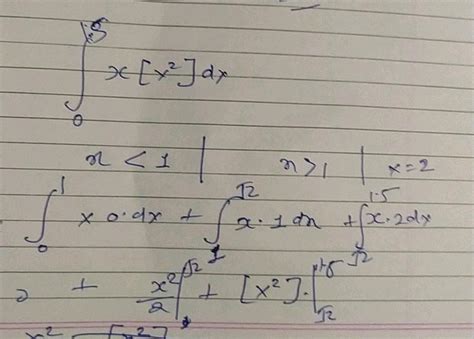 ∫₀^1.5 x[x²]dx
x < 1 | x>1 | x=2
∫₀¹ x 0·dx + ∫₁^√2 x·1dx + ∫_√2^1.5 x·2dx
0 + x²/2 |₁^√2 + [x²]·|_√2^1.5